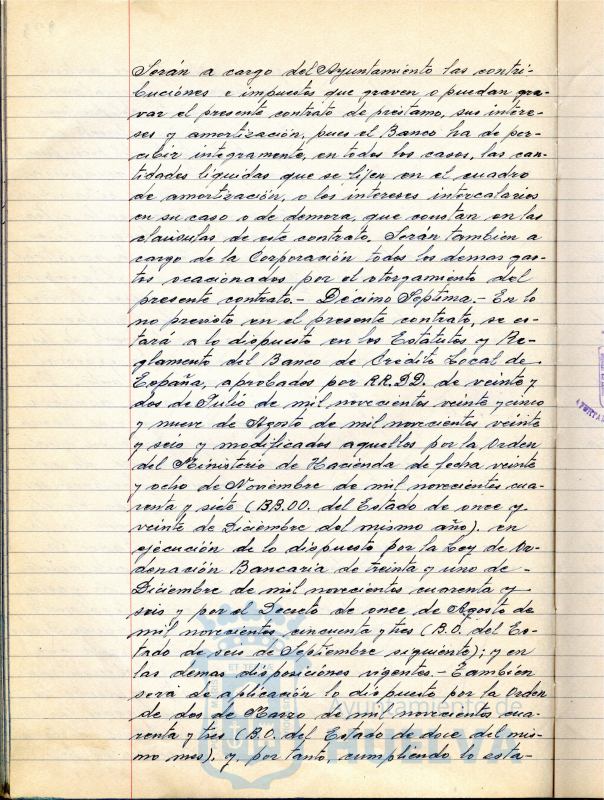 Serán a cargo del Ayuntamiento las contri-
buciónes e impuestos que graven o puedan gra-
var el presente contrato de préstamo, sus intere-
ses y amortización, pues el Banco ha de per-
cibir integramente, en todos los casos, las can-
tidades líquidas que se fijen en el cuadro
de amortización, o los intereses intercalarios
en su caso o de demora, que constan en las
claúsulas de este contrato. Serán tambien a
cargo de la Corporación todos los demas gas-
tos ocacionados por el otorgamiento del
presente contrato.- Décimo Septima.- En lo
no previsto en el presente contrato, se es-
tará a lo dispuesto en los Estatutos y Re-
glamento del Banco de Crédito Local de
España, aprobados por RR.DD. de veinte y
dos de Julio de mil novecientos veinte y cinco
y nueve de Agosto de mil novecientos veinte
y seis y modificados aquellos por la Orden
del Ministerio de Hacienda de fecha veinte
y ocho de Noviembre de mil novecientos cua-
renta y siete (BB.OO. del Estado de once y
veinte de Diciembre del mismo año). en
ejecución de lo dispuesto por la Ley de Or-
denación Bancaria de treinta y uno de
Diciembre de mil novecientos cuarenta y
seis y por el Decreto de once de Agosto de
mil novecientos cincuenta y tres (B.O. del Es-
tado de seis de Septiembre siguiente); y en
las demas disposiciónes vigentes.- Tambien
será de aplicación lo dispuesto por la Orden
de dos de Marzo de mil novecientos cua-
renta y tres (B.O. del Estado de doce del mis-
mo mes), y, por tanto cumpliendo lo esta-
Ayuntamiento de
HUELVA